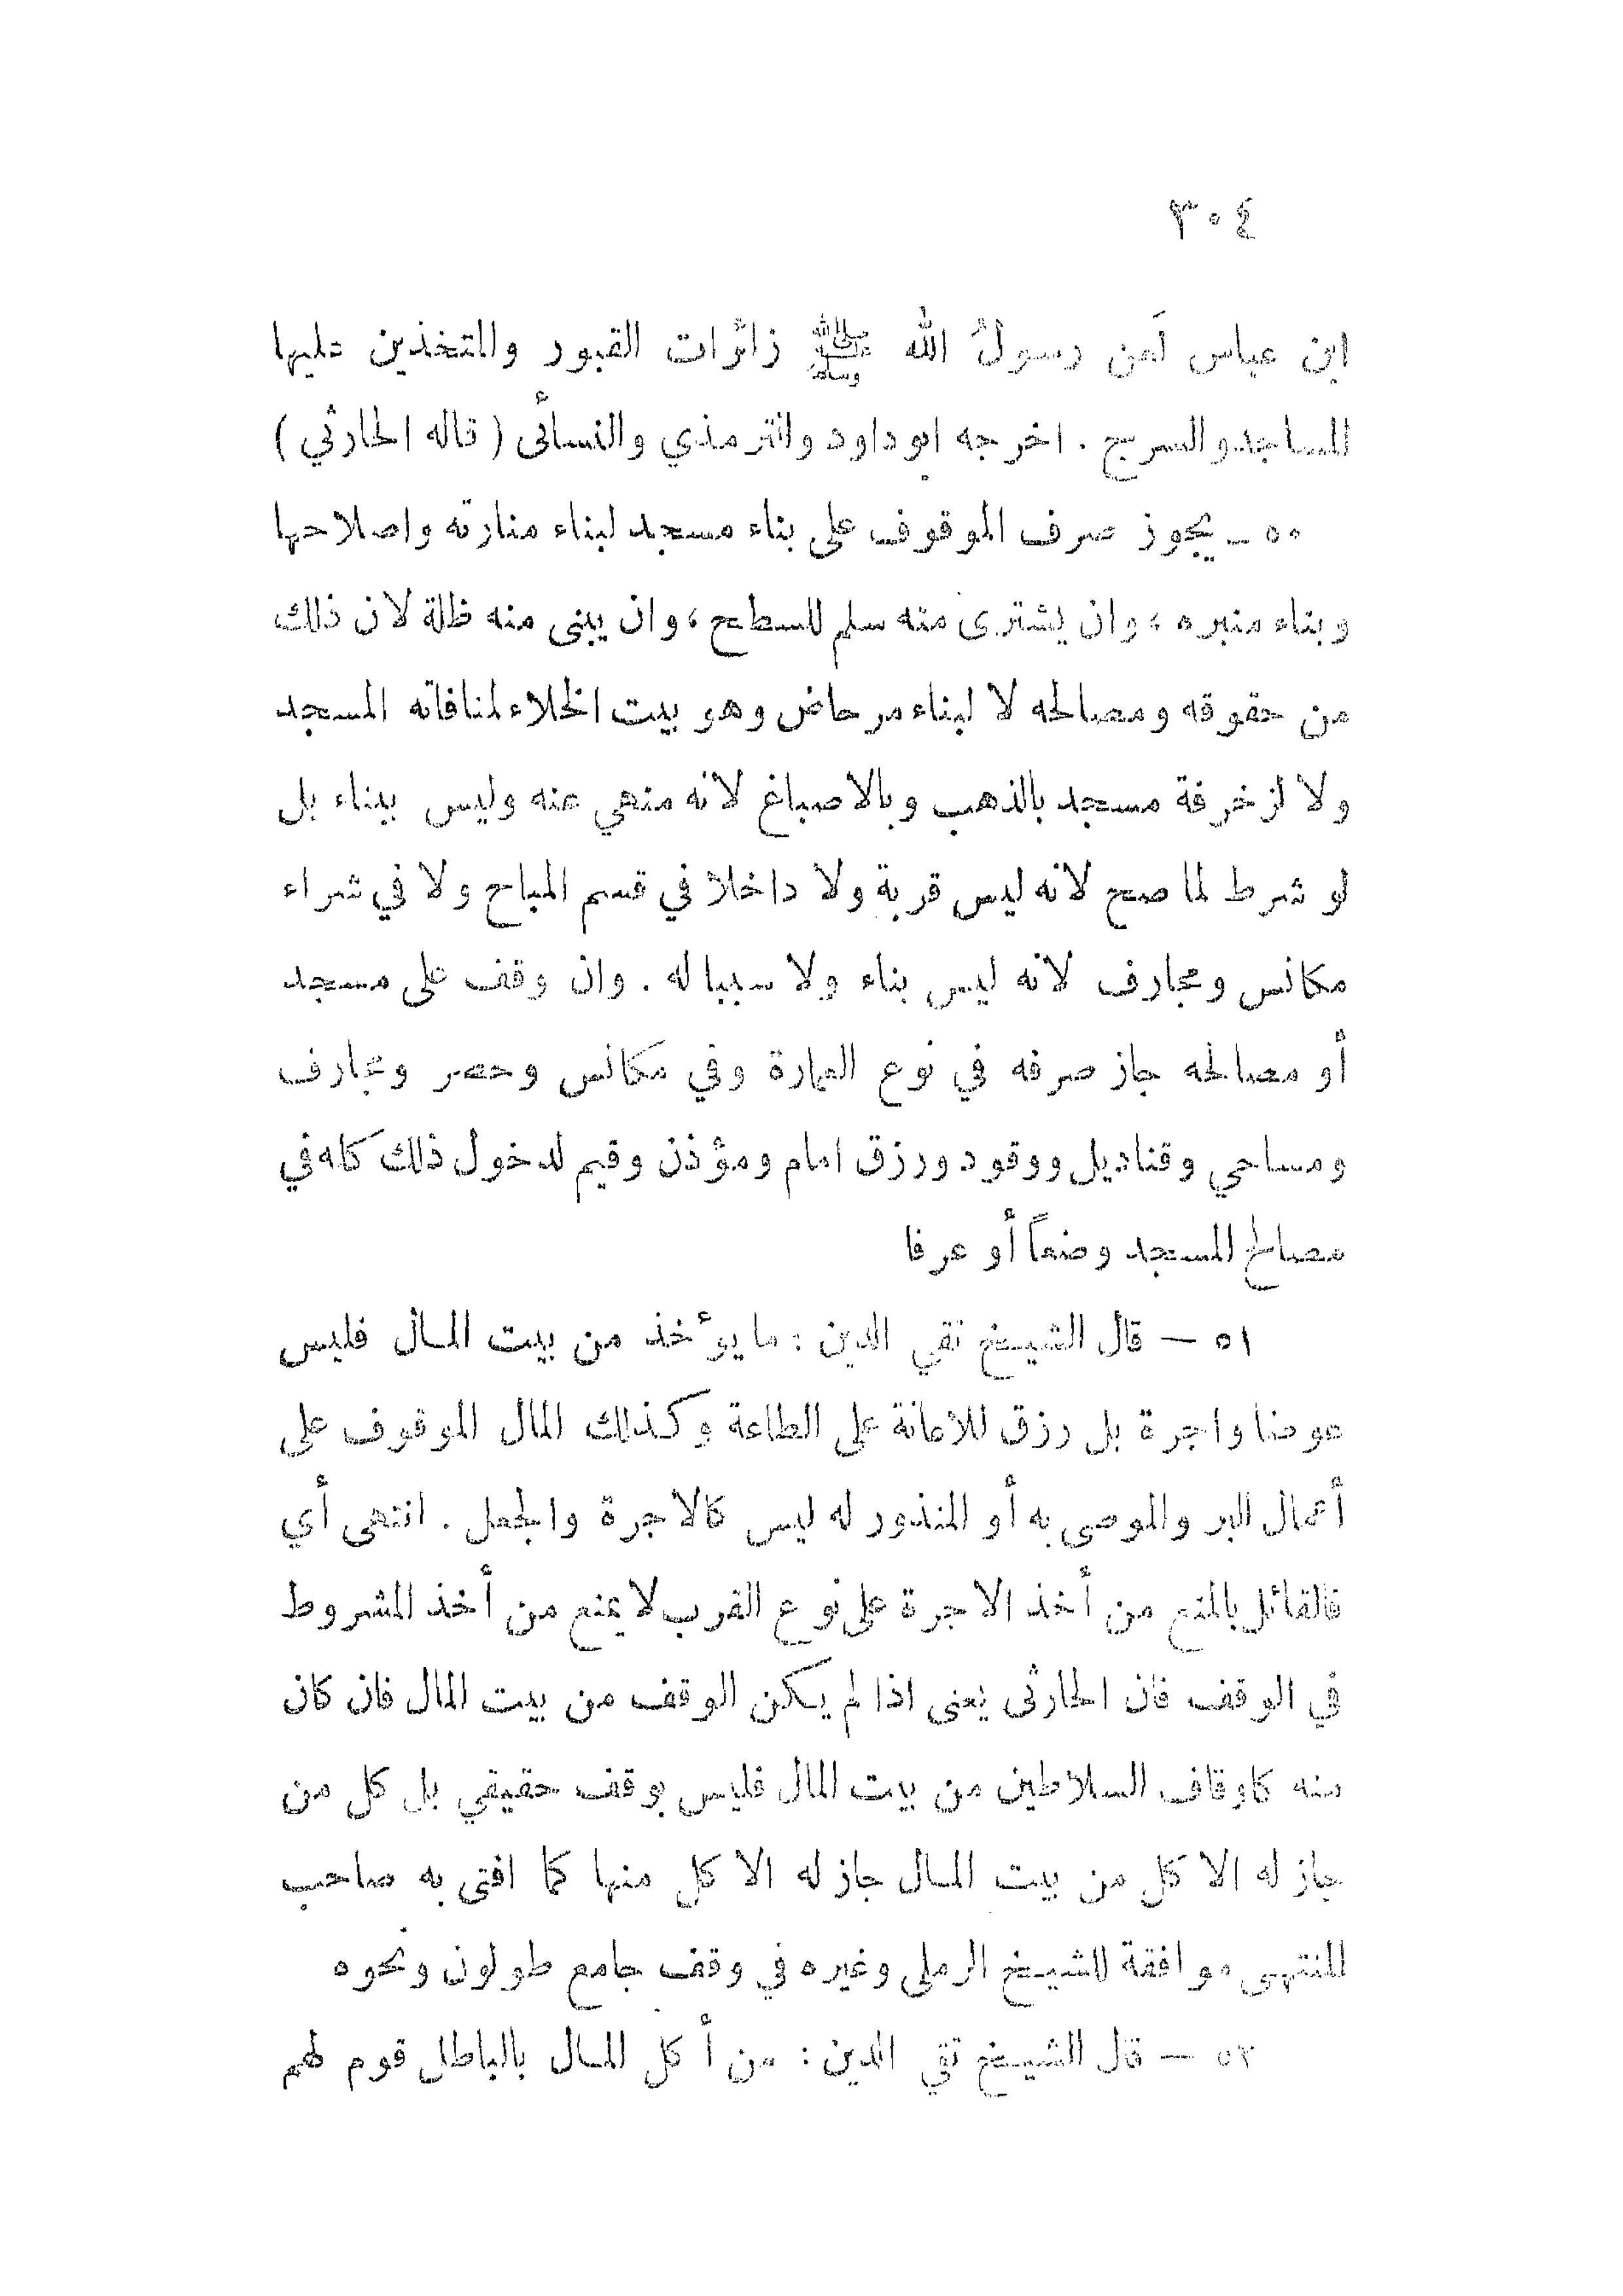 ٣٠٤
ابن عباس لَعن رسولُ الله ﷺ زائرات القبور والمتخذين عليها
المساجد والسرج . اخرجه ابو داود والترمذي والنسائى ( قاله الحارثي )
٥٠ – يجوز صرف الموقوف على بناء مسجد لبناء منارته واصلاحها
وبناء منبره ، وان يشترى منه سلم للسطح ، وان يبنى منه ظلة لان ذلك
من حقوقه ومصالحه لا لبناء مرحاض وهو بيت الخلاء لمنافاته المسجد
ولا لزخرفة مسجد بالذهب وبالاصباغ لانه منهي عنه وليس ببناء بل
لو شرط لما صح لانه ليس قربة ولا داخلا في قسم المباح ولا في شراء
مكانس ومجارف لانه ليس بناء ولا سببا له . وان وقف على مسجد
أو مصالحه جاز صرفه في نوع العمارة وفي مكانس وحصر ومجارف
ومساحي وقناديل ووقود ورزق امام ومؤذن وقيم لدخول ذلك كله في
مصالح المسجد وضعاً أو عرفا
٥١ – قال الشيخ تقي الدين : ما يؤخذ من بيت المال فليس
عوضا واجرة بل رزق للاعانة على الطاعة وكذلك المال الموقوف على
أعمال البر والموصى به أو المنذور له ليس كالاجرة والجعل . انتهى أي
فالقائل بالمنع من أخذ الاجرة على نوع القرب لا يمنع من أخذ المشروط
في الوقف قان الحارثى يعنى اذا لم يكن الوقف من بيت المال فان كان
منه كاوقاف السلاطين من بيت المال فليس بوقف حقيقي بل كل من
جاز له الاكل من بيت المال جاز له الاكل منها كما افتى به صاحب
المنتهى موافقة للشيخ الرملى وغيره في وقف جامع طولون ونحوه
٥٢ – قال الشيخ تقي الدين : من أكل المال بالباطل قوم لهم